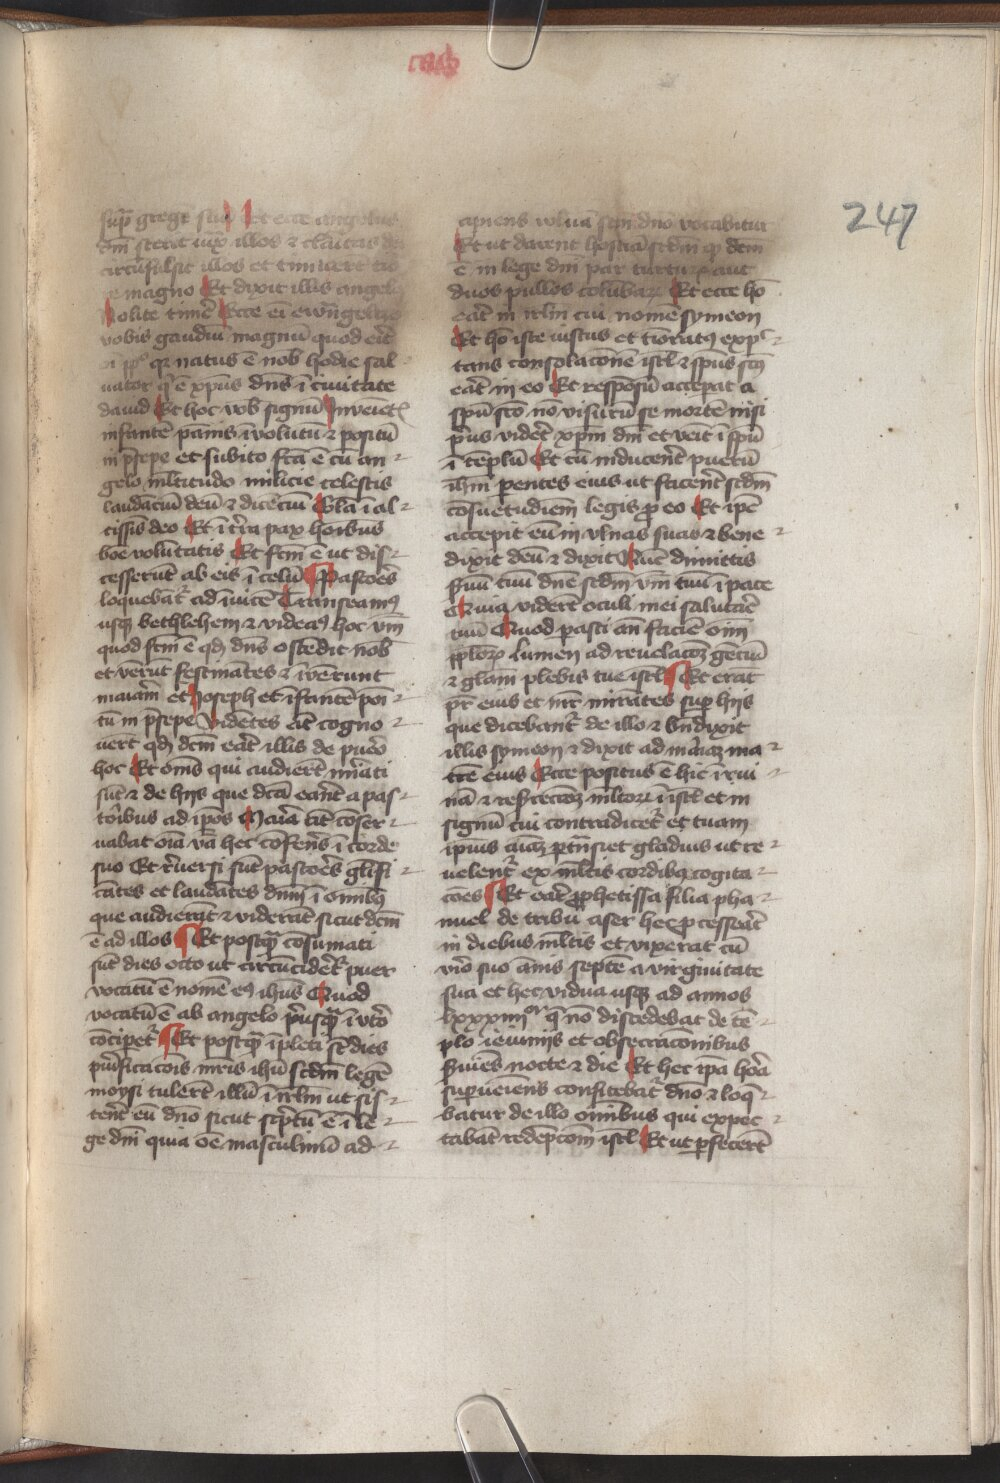 247
supra gregē suū Et ecce angelus
dm̄ stetit iux̄ illos ⁊ claritas dei
circūfulsit illos et timuerūt tio
re magno Et dixit illis angelꝰ
Nolite timē Ecce ei ewāgelizo
vobis gaudiū magnū quod erit
oī ppl̄o qꝛ natus ē nob̄ hodie sal
uator qͥ ē xp̄us dn̄s ī ciuitate
dauid Et hoc vob̄ signū Inueiet̄
infantē panis īuolutū ⁊ positū
in p̄sepe et subito fcā ē cū an
gelo ml̄titudo milicie celestis
laudāciū deū ⁊ dicēciū Gl̄a ī al
tissīs deo Et ī tr̄ra pax hoībus
boē volūtatis Et fcm̄ ē ut dis
cesserūt ab eis ī celū Pastoēs
loquebāt̄ ad īuicē Transeamꝰ
usqꝫ bethlehem ⁊ videaꝰ hoc v̄m
quod fcm̄ ē qd̄ dn̄s ostēdit nob̄
et vēr̄ut festinātes ⁊ īuēr̄unt
maiam̄ et Joseph et īfantē poi
tū in p̄sepe Vidētes āt cogno
uer̄t qd̄ dcm̄ eāt illis de pueō
hoc Et om̄s qui audier̄t mīati
sūt ⁊ de hijs que dcā eānt a pas
tōibus ad ip̄os Maīa āt cōser
uabat oīa v̄a hec cōfeēns ī corde
suo Et r̄uersi sūt pastoēs gl̄ifi
cātes et laudātes dn̄m ī omībꝰ
que audierāt ⁊ viderāt sicut dcm̄
ē ad illos Et postqͣ cōsumati
sūt dies octo ut circūcidet̄ puer
vocatū ē nomē eꝰ ihūs Quod
vocatū ē ab angelo pͥusqͣ ī vtō
cōcipet̄ Et postqͣ īpleti sūt dies
puͥficacōis mr̄is ihū scdm̄ legē
moysi tulerūt illū ī irlm̄ ut sis
tent eū dn̄o sicut scp̄tū ē ī le
ge dm̄ quia oē masculinū ad
apiens vuluā scm̄ dn̄o vocabitur
Et ut darent hostiā scdm̄ qd̄ dcm̄
ē in lege dm̄ par turturū aut
duos pullos columbaꝝ Et ecce hō
eāt in irlm̄ cui nomē symeon
Et hō iste iustus et tīoratꝰ exp̄c
tans consolacōnē isrl̄ ⁊ spūs scūs
eāt in eo Et respōsū accepat a
spū scō nō visurū se mortē nisi
pͥus videt̄ xp̄m dm̄ et veīt ī spū
ī tēplū Et cū inducent̄ puerū
ihm̄ parentes eius ut facent̄ scdm̄
cōsuetudinem legis pro eo Et ip̄e
accepit eū in vlnas suas ⁊ bene
dixit deū ⁊ dixit Nūc dimittis
suū tuū dn̄e scdm̄ v̄m tuū ī pace
Quia viderūt oculi mei salutāe
tuū Quod pasti an̄ faciē oīm
pp̄loꝝ Lumen ad reuelacōꝫ geciū
⁊ glam̄ plebis tue isrl̄ Et erat
pr̄ eius et mr̄ mirātes sup̱ hijs
que dicebant̄ de illo ⁊ bn̄dixit
illis symeon ⁊ dixit ad mīaꝫ ma
trē eius Ecce positus ē hic ī rui
nā ⁊ resr̄rectōꝫ ml̄torꝫ ī isrl̄ et in
signū cui contradicet̄ et tuam
ipsius aīaꝫ ꝑtn̄siet gladius ut re
uelent̄ ex ml̄tis cordibꝰ cogita
cōes Et eāt ꝓphetissa filia pha
nuel de tribu aser hec ꝓcesseāt
in diebus ml̄tis et vixerat cū
viō suo ānis septē a virginitate
sua et hec vidua usqꝫ ad annos
lxxxiiii q̄ nō discedebat de tē
plo ieiunijs et obsecracōnibus
s̄uiēs nocte ⁊ die Et hec ip̄a hoā
supueiēns confitebat̄ dn̄o ⁊ loqͥ
batur de illo omnibus qui expec
tabāt redēpcōm̄ isrl̄ Et ut ꝑfecer̄t